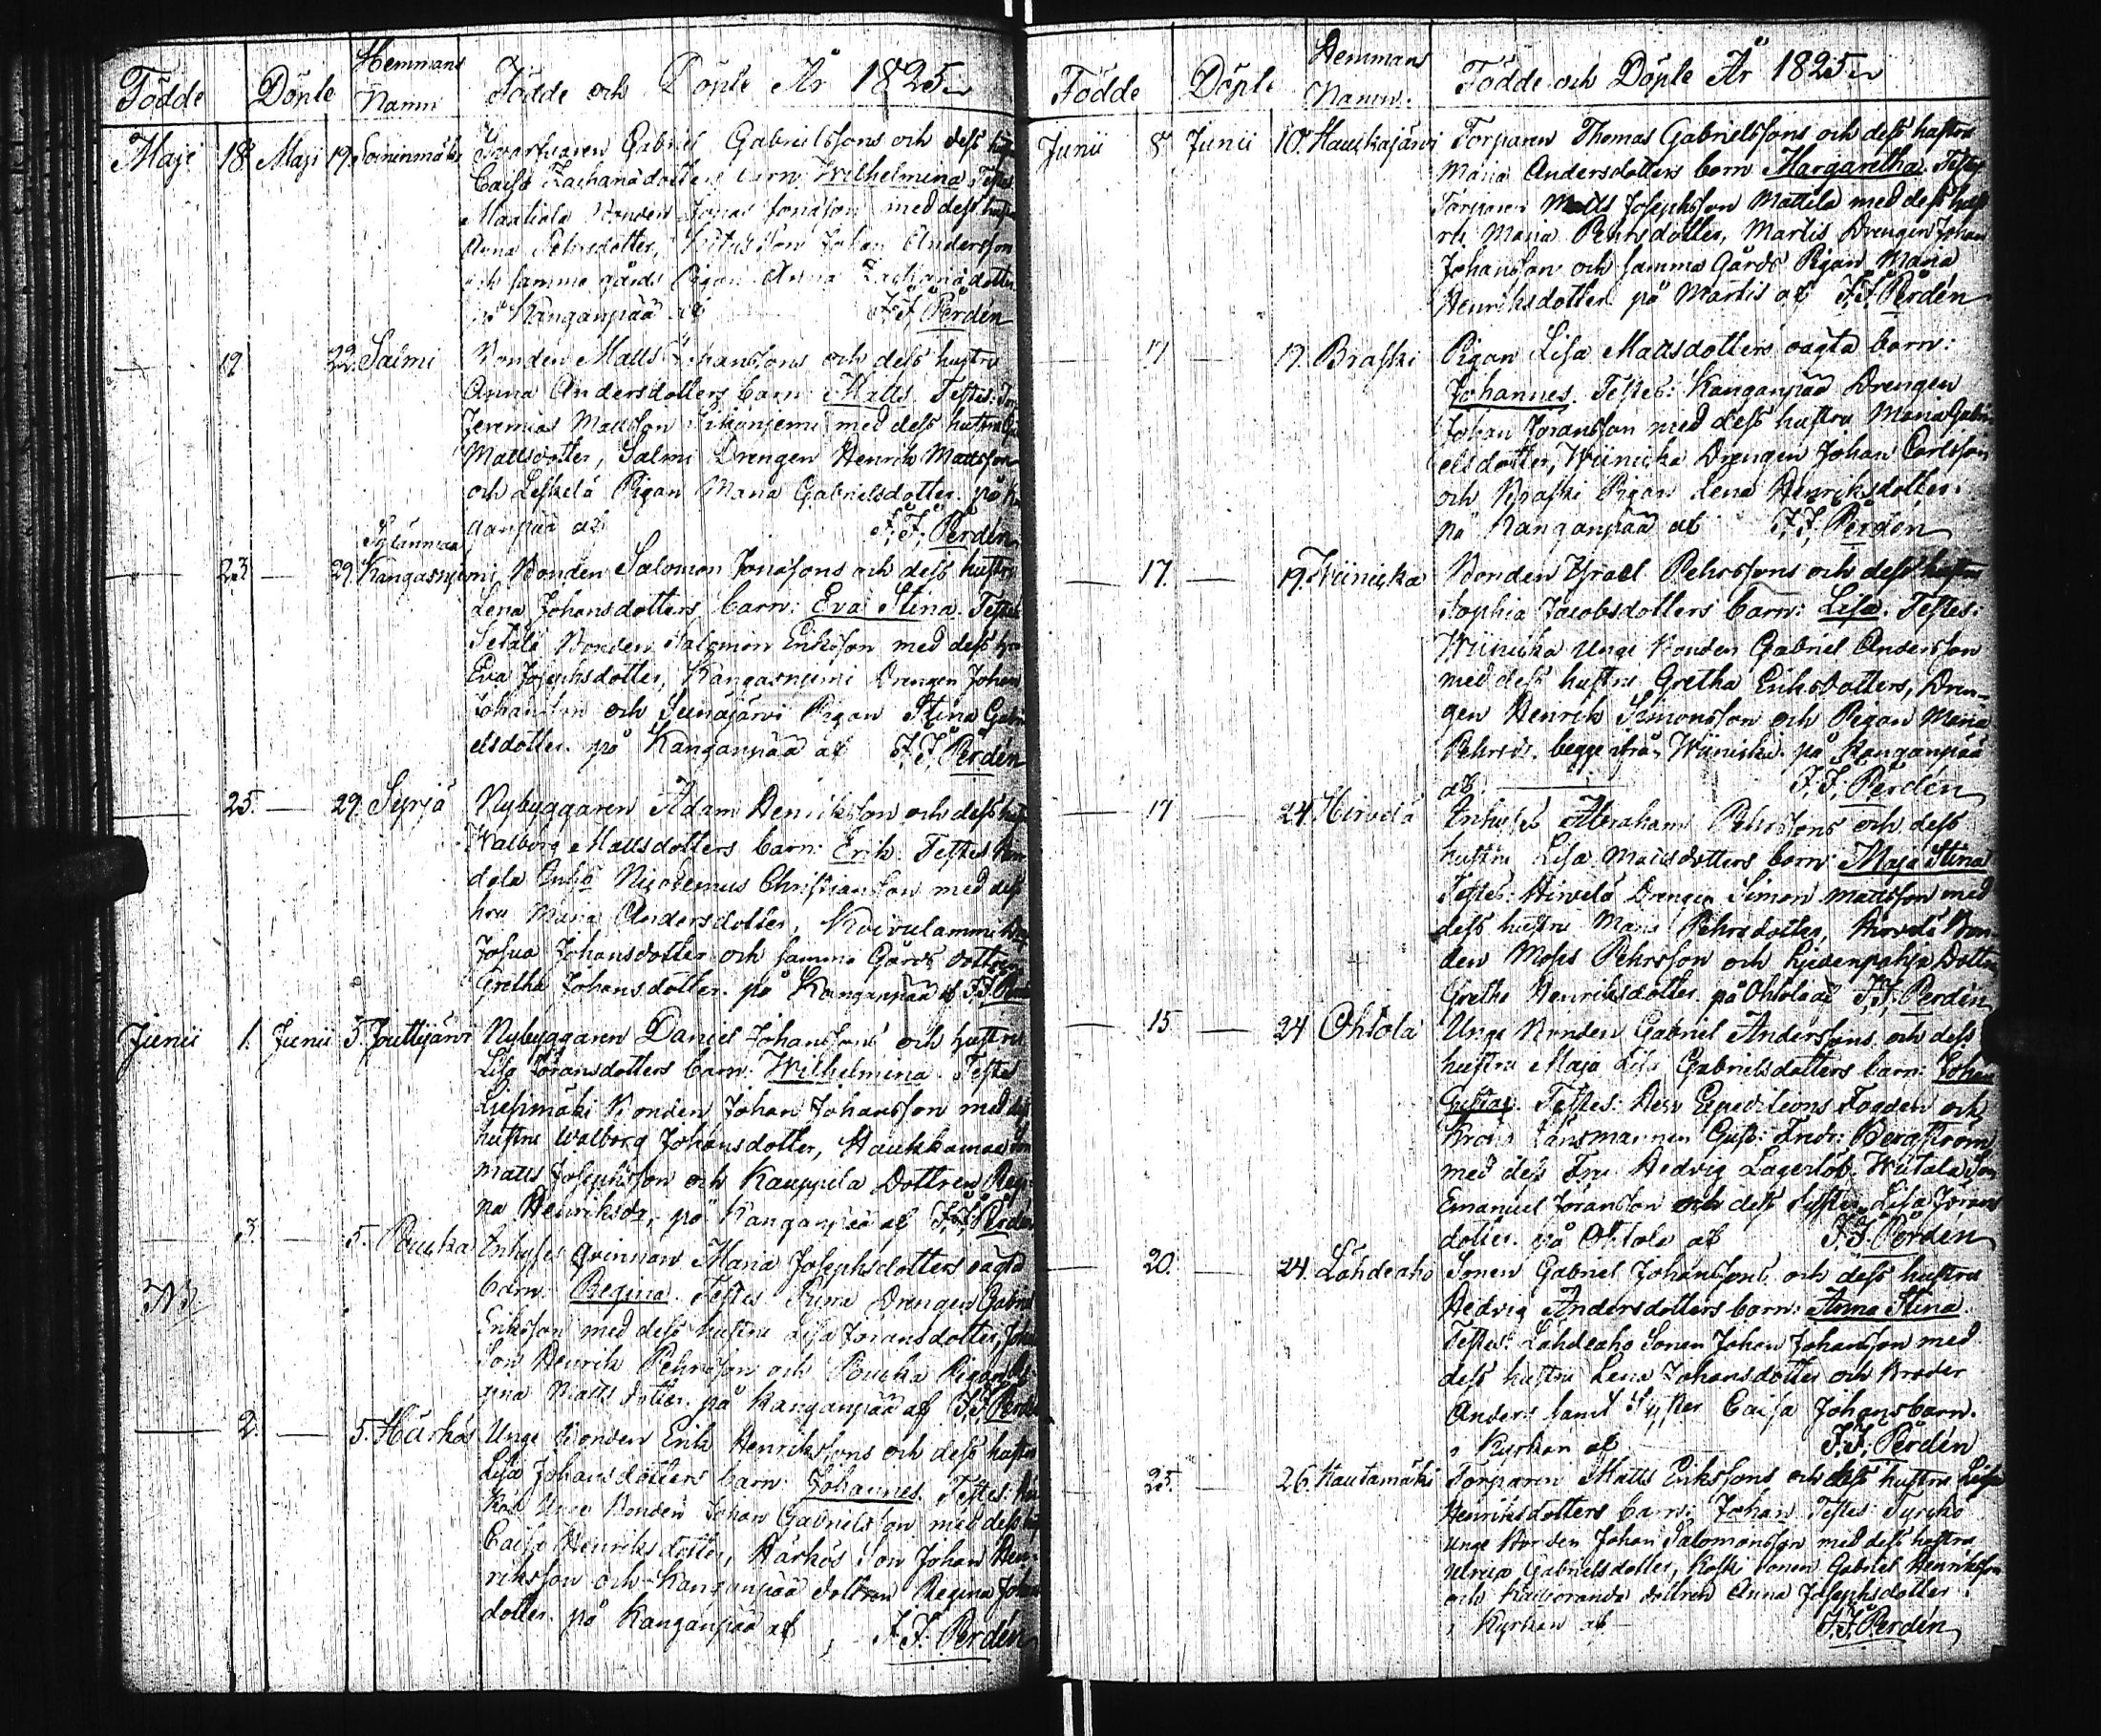 Födde Döpte Hemmans Namn Födde och Döpte År 1825
Maji 18 Maji 19. Soininmäki Svarfvaren Gabriel Gabrielssons och dess
Caisa Zachariædotters barn: Wilhelmina. Testes
Bonden Jonas Jonasson med dess hustru
Anna Pehrsdotter, Son Johan Andersson
och samma gårds Pigan Anna Zachariædotter
på Kanganpää af F.F. Perdén
19 22. Salmi Bonden Matts Johanssons och dess hustru
Anna Andersdotters barn: Matts. Testes:
Jeremias Mattsson med dess hustru
Mattsdotter, Salmi Drengen Henrik Mattsson
och Leskelä Pigan Maria Gabrielsdotter. på
ganpää af F.F. Perdén
23 — 29. Kangasniemi Bonden Salomon Jonassons och dess hustru
Lena Johansdotters barn: Eva Stina. Testes
Setälä Bonden Salomon Eriksson med dess
Eva Josephsdotter, Kangasniemi Drengen Johan
Johansson och Seinäjärvi Pigan Stina Gabri
elsdotter. på Kanganpää af F.F. Perdén
25. — 29. Syrjä Nybyggaren Adam Henriksson och dess
Walborg Mattsdotters barn: Erik. Testes
dala Nicodemus Christiansson med dess
hru Maria Andersdotter, Koivulammi
Josua Johansdotter och samma Gårds dottren
Gretha Johansdotter. på Kanganpää af F.F.
Junii 1. Junii 5. Jouttijärvi Nybyggaren Daniel Johanssons och hustru
Lisa Göransdotters barn: Wilhelmina. Testes
Bonden Johan Johansson med dess
hustru Walborg Johansdotter, Haukkamaa
Matts Josephsson och Kauppila Dottren Regi
na Henriksdr. på Kanganpää af F.F. Perdén
3. — 5. Poucka Enhyses qvinnan Maria Josephsdotters oägta
barn: Regina. Testes Drengen Gabriel
Eriksson med dess hustru Lisa Göransdotter,
Son Henrik Pehrsson och Poucka Pigan Re
gina Matts dotter. på Kanganpää af F.F. Perdén
2. — 5. Härkös Unge Bonden Erik Henrikssons och dess hustru
Lisa Johansdotters barn: Johannes. Testes.
Unge Bonden Johan Gabrielsson med dess
Caisa Henriksdotter, Härkös Son Johan Hen
riksson och Kanganpää dottren Regina Johans
dotter. på Kanganpää af F.F. Perdén
Födde Döpte Hemmans Namn. Födde och Döpte År 1825
Junii 8 Junii 10. Haukajärvi Torparen Thomas Gabrielssons och dess hustru
Maria Andersdotters barn Margaretha. Testes
Torparen Matts Josephsson Mattila med dess hust
ru Maria Pehrsdotter, Martis Drengen Johan
Johansson och samma Gårds Pigan Maria
Henriksdotter på Martis af F.F. Perdén
— 17 — 17. Braski Pigan Lisa Mattsdotters oägta barn:
Johannes. Testes: Kanganpää Drengen
Johan Göransson med dess hustru Maria Gabri
elsdotter, Wiinicka Drengen Johan Carlsson
och Braski Pigan Lena Henriksdotter.
på Kanganpää af F.F. Perdén
— 17. — 19. Wiinicka Bonden Israel Pehrssons och dess hustru
Sophia Jacobsdotters barn: Lisa. Testes:
Wiinicka Unge Bonden Gabriel Andersson
med dess hustru Gretha Eriksdotters, Dren-
gen Henrik Simonsson och Pigan Maria
Pehrsdr. begge ifrån Wiinicka. på Kanganpää
af F.F. Perdén
— 17 — 24. Hirvelä Enhyses Abraham Pehrssons och dess
hustru Lisa Mattsdotters barn Maja Stina
Testes: Hirvelä Drengen Simon Mattsson med
dess hustru Maria Pehrsdotter, Hirvelä Bon
den Moses Pehrsson och Dottren
Gretha Henriksdotter på Ohtola af F.F. Perdén
— 15 — 24 Ohtola Unge Bonden Gabriel Anderssons och dess
hustru Maja Lisa Gabrielsdotters barn: Johan
Gustav. Testes: Herr Expeditions Fogden och
Krono Länsmannen Gust: Fredr: Bergström
med dess Fru Hedvig Lagerlöf. Wiitala Son
Emanuel Göransson och dess Syster Lisa Jörans
dotter. på Ohtola af F.F. Perdén
— 20. — 24. Lähdeaho Sonen Gabriel Johanssons och dess hustru
Hedvig Andersdotters barn: Anna Stina.
Testes: Lähdeaho Sonen Johan Johansson med
dess hustru Lena Johansdotter och Broder
Anders samt Syster Caisa Johansbarn.
i Kyrkan af F.F. Perdén
25. — 26. Rautamäki Torparen Matts Erikssons och dess hustru Lisa
Henriksdotters barn: Johan Testes
unge Bonden Johan Salomonsson med dess hustru
Ulrica Gabrielsdotter, Koski sonen Gabriel Henriksson
och dottren Anna Josephsdotter
i Kyrkan af — F.F. Perdén